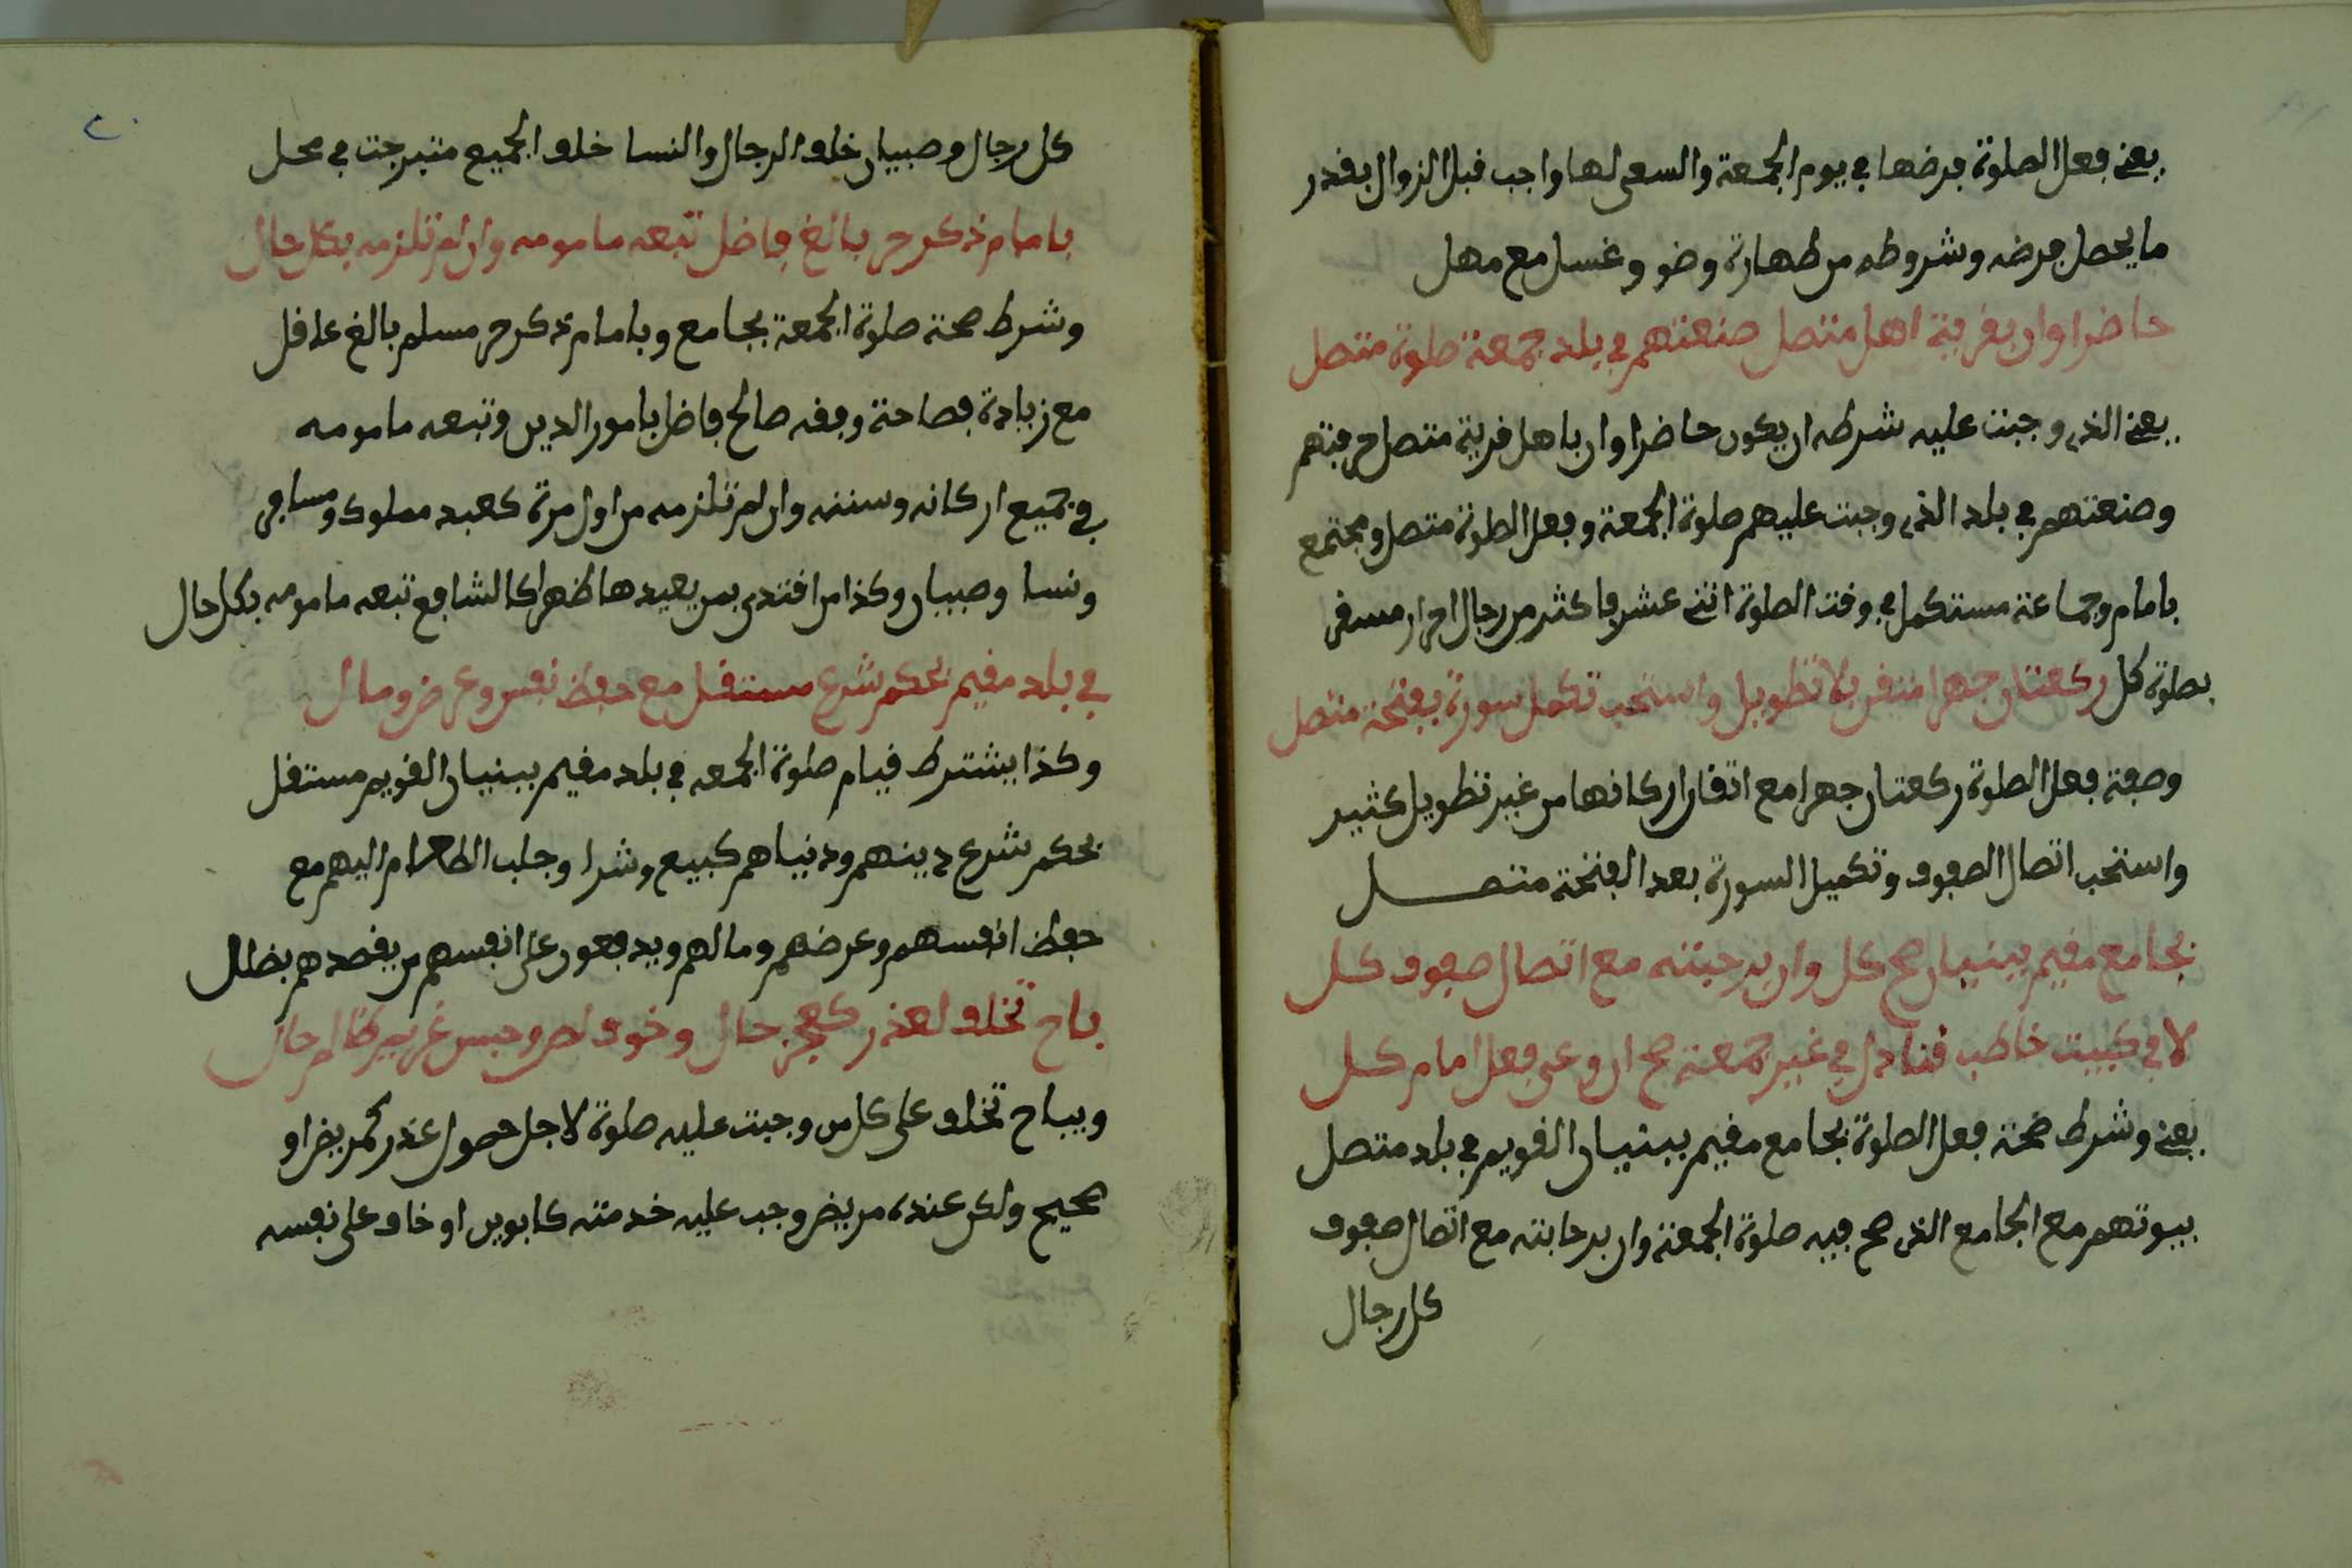 يعني فعل الصلوة فرضها في يوم الجمعة والسعي لها واجب قبل الزوال بقدر
ما يحصل فرضه وشروطه من طهارة وضو وغسل مع مهل
حاضرا وان بقرية اهل متصل صنعتهم في بلد جمعة صلوة متصل
يعني الذي وجبت عليه شرطه ان يكون حاضرا وان باهل قرية متصل حرفتهم
وصنعتهم في بلد الذي وجبت عليهم صلوة الجمعة وفعل الصلوة متصل ومجتمع
بامام وجماعة مستكمل في وقت الصلوة اثني عشر فاكثر من رجال احرار
بصلوة كل ركعتان جهرا متقن بلا تطويل واستحب تكمل سورة بفتحة متصل
وصفة فعل الصلوة ركعتان جهرا مع اتقان اركانها من غير تطويل كثير
واستحب اتصال الصفوف وتكميل السورة بعد الفتحة متصل
بجامع مقيم ببنيان صح كل وان برحبته مع اتصال صفوف كل
لا في كبيت خاطب قنادل في غير جمعة صح ان وعى فعل امام كل
يعني وشرط صحة فعل الصلوة بجامع مقيم ببنيان القويم في بلد متصل
بيوتهم مع الجامع الذي صح فيه صلوة الجمعة وان برحابته مع اتصال صفوف
كل رجال
كل رجال وصبيان خلف الرجال والنسا خلف الجميع متبرجت في محل
بامام ذكر حر بالغ فاضل تبعه مامومه وان لم تلزمه بكل حال
وشرط صحة صلوة الجمعة بجامع وبامام ذكر حر مسلم بالغ عاقل
مع زيادة فصاحة وفقه صالح فاضل بامور الدين وتبعه مامومه
في جميع اركانه وسننه وان لم تلزمه من اول مرة كعبد مملوك ومسافر
ونسا وصبيان وكذا من اقتدى بمن يعيدها ظهرا كالشافع تبعه مامومه بكل حال
في بلد مقيم بحكم شرع مستقل مع حفظ نفس وعرض ومال
وكذا يشترط قيام صلوة الجمعه في بلد مقيم ببنيان القويم مستقل
بحكم شرع دينهم ودنياهم كبيع وشرا وجلب الطعام اليهم مع
حفظ انفسهم وعرضهم ومالهم ويدفعون على انفسهم من يقصدهم بضلال
باح تخلف لعذر كعجز حال وخوف لص وحبس غريم ظالم جال
ويباح تخلف على كل من وجبت عليه صلوة لاجل حصول عذر كمريض او
صحيح ولكن عنده مريض وجب عليه خدمته كابوين او خاف على نفسه